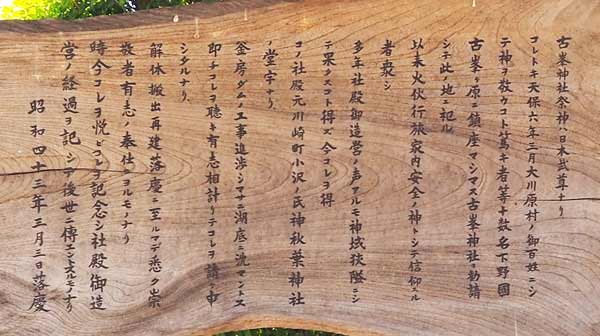 古峯神社祭神ハ日本武尊ナリ
コレトキ天保六年三月大川原村ノ御百姓ニシ
テ神ヲ敬ウコト篤キ者等十数名下野國
古峯ヶ原ニ鎮座マシマス古峯神社勧請
シテ此ノ地ニ祀ル
以来火伏行旅家内安全ノ神トシテ信仰スル
者衆シ
多年社殿御造営ノ声アルモ神域狭隘ニシ
テ果タスコト得ズ今コレヲ得
コノ社殿元川崎町小沢ノ氏神秋葉神社
ノ堂宇ナリ
釜房ダムノ工事進渉シマサニ湖底ニ沈マントス
即チコレヲ聴キ有志相計リテコレヲ請ケ申
シタルナリ
解体搬出再建落慶ニ至ルマデ悉ク崇
敬者有志ノ奉仕ニヨルモノナリ
時今コレヲ悦ビコレヲ記念シ社殿御造
営ノ経過ヲ記シテ後世ニ傳エントスルモノナリ
昭和四十三年三月三日落慶